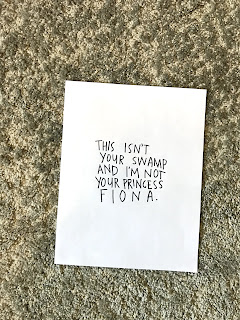 THIS ISN'T
YOUR SWAMP
AND I'M NOT
YOUR PRINCESS
FIONA.